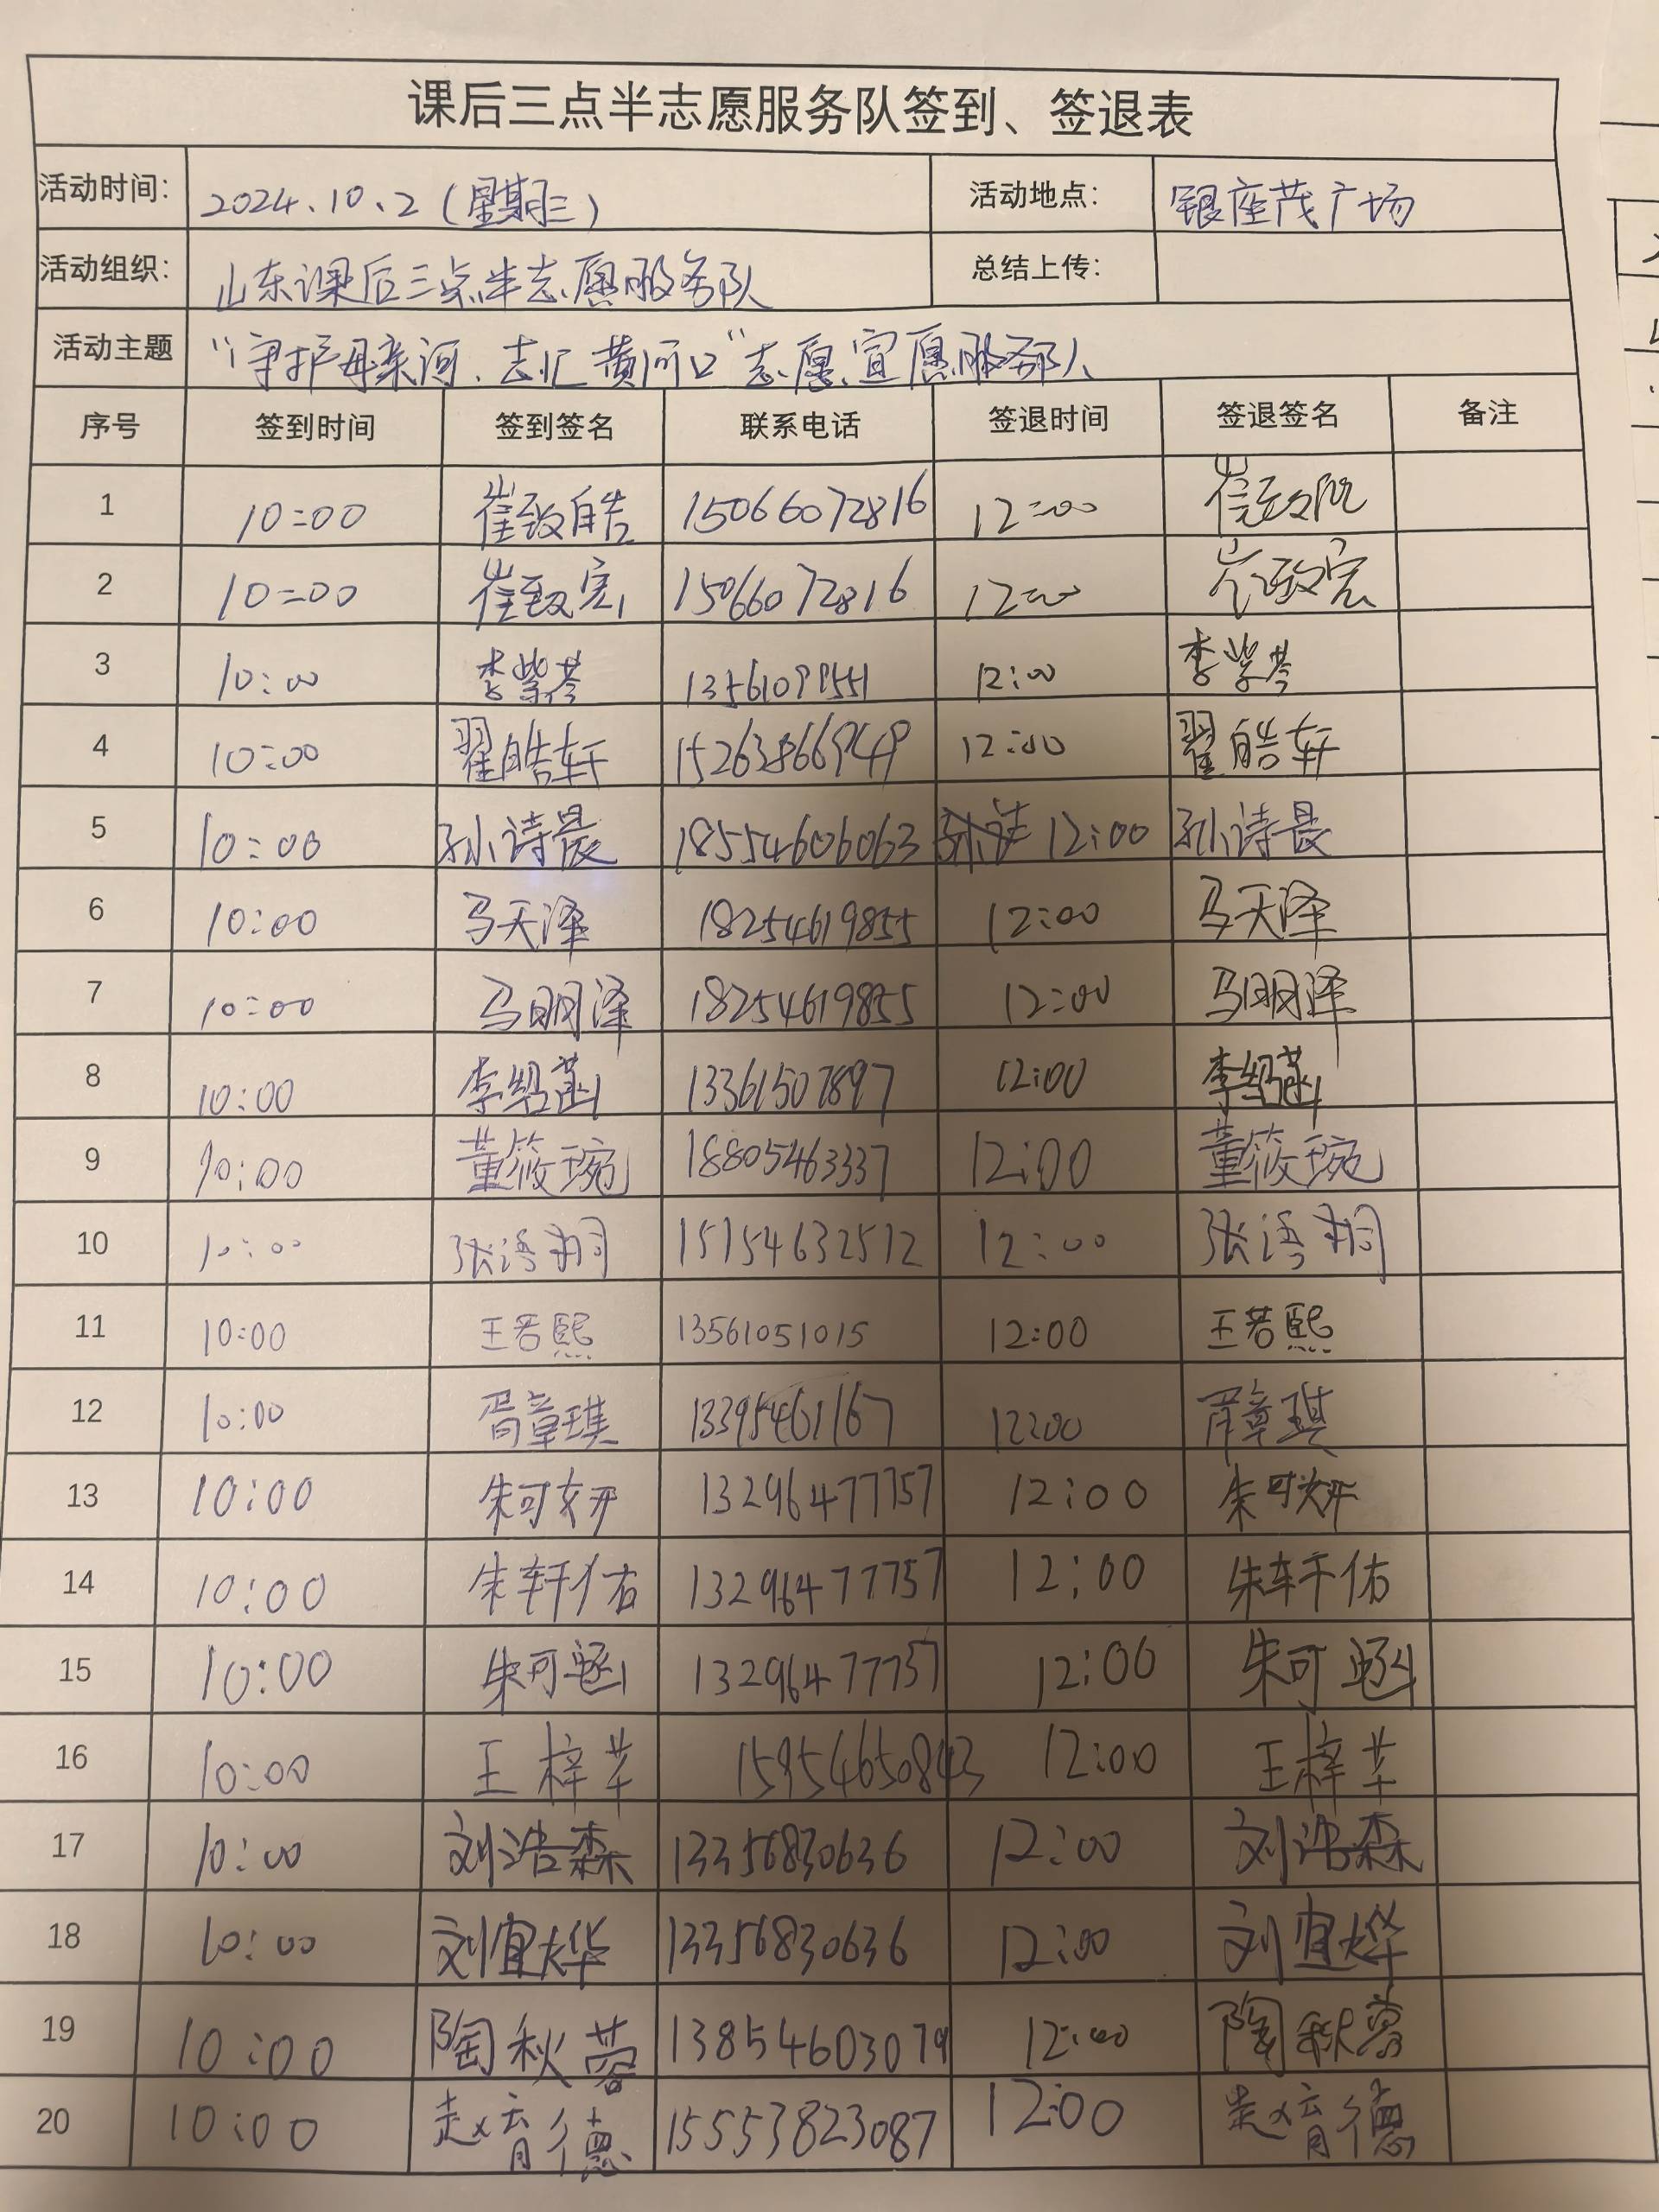 课后三点半志愿服务队签到、签退表
活动时间: 2024.10.2(星期三) 活动地点: 银座茂广场
活动组织: 山东课后三点半志愿服务队 总结上传:
活动主题 “守护母亲河、志汇黄河口”志愿宣愿服务队
序号 签到时间 签到签名 联系电话 签退时间 签退签名 备注
1 10:00 崔致皓 15066072816 12:00
2 10:00 崔致宏 15066072816 12:00 崔致宏
3 10:00 李紫芩 12:00 李紫芩
4 10:00 翟皓轩 15263866949 12:00 翟皓轩
5 10:00 孙诗晨 18554606063 12:00 孙诗晨
6 10:00 马天泽 18254619855 12:00 马天泽
7 10:00 马明泽 18254619855 12:00 马明泽
8 10:00 李绍菡 13361507897 12:00 李绍菡
9 10:00 董筱琬 18805463337 12:00 董筱琬
10 10:00 张语桐 15154632512 12:00 张语桐
11 10:00 王若熙 13561051015 12:00 王若熙
12 10:00 胥章琪 13395461167 12:00 胥章琪
13 10:00 朱可妍 13296477757 12:00 朱可妍
14 10:00 朱轩佑 13296477757 12:00 朱轩佑
15 10:00 朱可涵 13296477757 12:00 朱可涵
16 10:00 王梓芊 15954650843 12:00 王梓芊
17 10:00 刘浩森 13356830636 12:00 刘浩森
18 10:00 刘宜烨 13356830636 12:00 刘宜烨
19 10:00 陶秋蓉 13854603079 12:00 陶秋蓉
20 10:00 赵育德 15553823087 12:00 赵育德